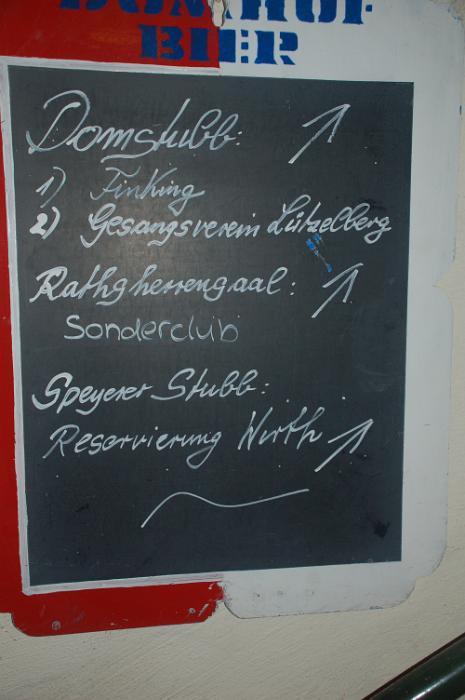 DOMHOF
BIER
Domstubb: ↗
1) FinKing
2) Gesangsverein Lützelberg
Rathsherrensaal: ↗
Sonderclub
Speyerer Stubb:
Reservierung Wirth ↗